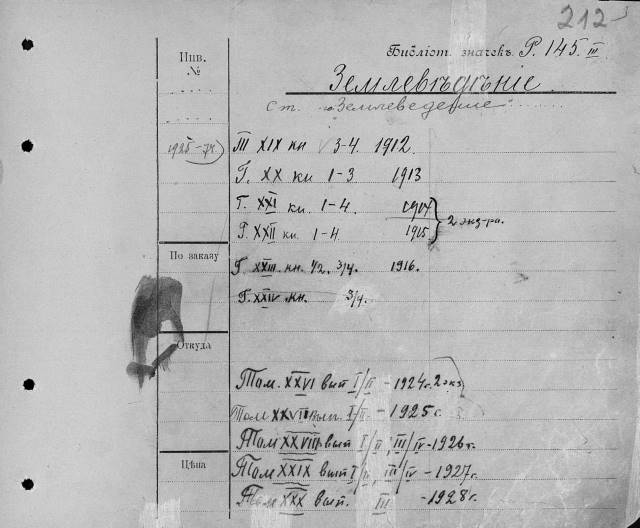 212
Библіот. значекъ P. 145 III
Инв.
№
Землевѣдѣніе.
ст. "Землеведение"
1925-74
III XIX кн 3-4. 1912
Г. XX кн 1-3 1913
Г. XXI кн. 1-4. 1914
Г. XXII кн. 1-4. 1915
2 экз-ра.
По заказу
Г. XXIII. кн. 1/2, 3/4. 1916.
Г. XXIV кн. 3/4.
Откуда
Том. XXVI вып I/II - 1924 г. 2 экз
Том XXVII вып. I/II - 1925 г.
Том XXVIII вып I/II, III/IV - 1926 г.
Цѣна
Том. XXIX вып I/II, III/IV - 1927 г.
Том. XXX вып. III - 1928 г.